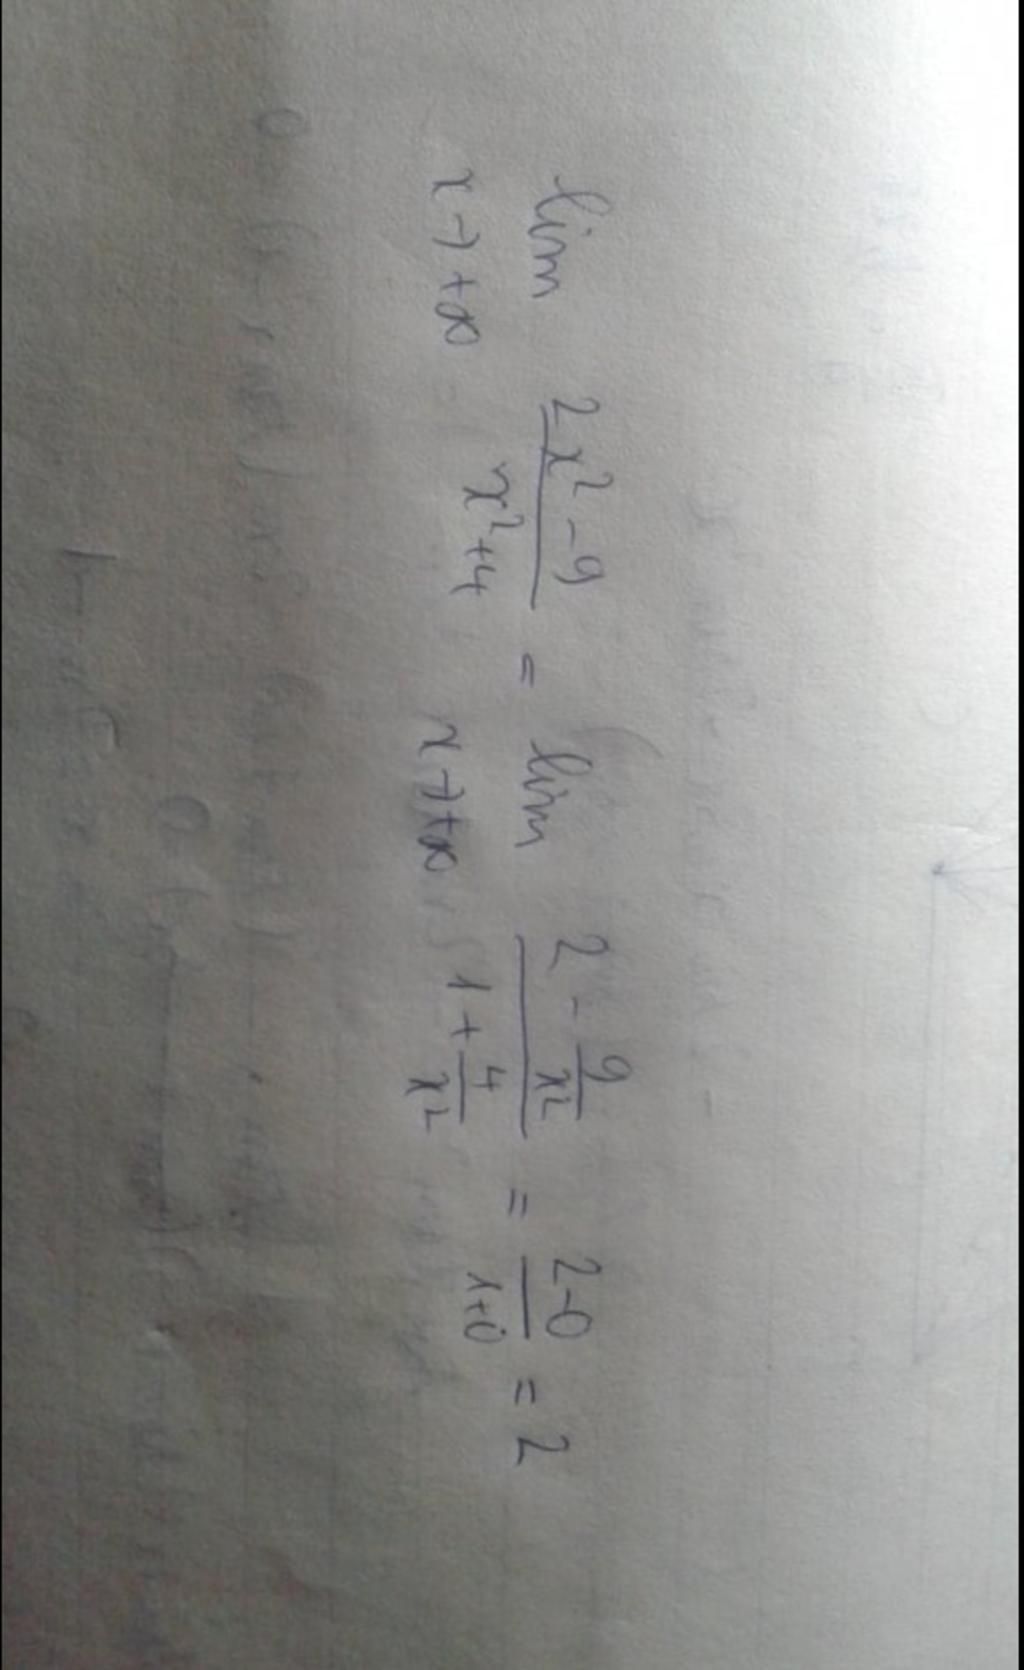 lim 2x² - 9 / x² + 4 = lim 2 - 9/x² / 1 + 4/x² = 2-0 / 1+0 = 2
x → +∞ x → +∞